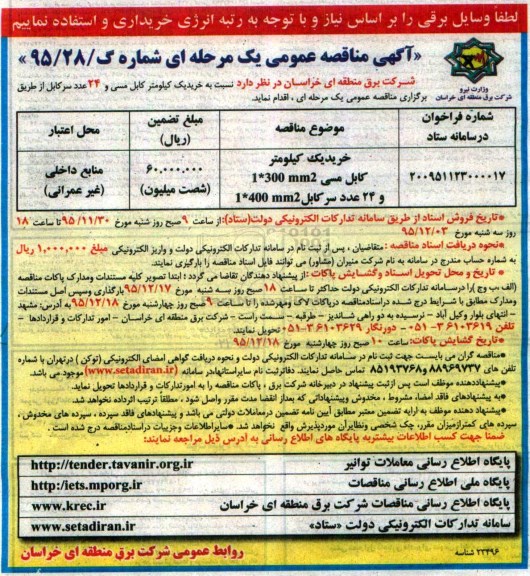 لطفاً وسایل برقی را بر اساس نیاز و با توجه به رتبه انرژی خریداری و استفاده نماییم
«آگهی مناقصه عمومی یک مرحله ای شماره گ/۹۵/۲۸»
شرکت برق منطقه ای خراسان در نظر دارد نسبت به خرید یک کیلومتر کابل مسی و ۲۴ عدد سرکابل از طریق
برگزاری مناقصه عمومی یک مرحله ای ، اقدام نماید.
وزارت نیرو
شرکت برق منطقه ای خراسان
شماره فراخوان در سامانه ستاد
موضوع مناقصه
مبلغ تضمین (ریال)
محل اعتبار
۲۰۰۹۵۱۱۲۳۰۰۰۰۱۷
خرید یک کیلومتر
کابل مسی 1*300 mm2
و ۲۴ عدد سرکابل 1*400 mm2
۶۰.۰۰۰.۰۰۰
(شصت میلیون)
منابع داخلی
(غیر عمرانی)
*تاریخ فروش اسناد از طریق سامانه تدارکات الکترونیکی دولت(ستاد): از ساعت ۹ صبح روز شنبه مورخ ۹۵/۱۱/۳۰ تا ساعت ۱۸
روز سه شنبه مورخ ۹۵/۱۲/۰۳
*نحوه دریافت اسناد مناقصه : متقاضیان ، پس از ثبت نام در سامانه تدارکات الکترونیکی دولت و واریز الکترونیکی مبلغ ۱,۰۰۰,۰۰۰ ریال
به شماره حساب مندرج در سامانه به نام شرکت منیران (مشاور) می توانند فایل اسناد مناقصه را بارگیری نمایند.
* تاریخ و محل تحویل اسناد وگشایش پاکات :از پیشنهاد دهندگان تقاضا می گردد ؛ ابتدا تصویر کلیه مستندات ومدارک پاکات مناقصه
(الف،ب وج)را درسامانه تدارکات الکترونیکی دولت حداکثر تا ساعت ۱۸ صبح روز سه شنبه مورخ ۹۵/۱۲/۱۷ بارگذاری وسپس اصل مستندات
ومدارک مطابق با شرایط درج شده دراسنادمناقصه درپاکات لاک ومهرشده را تا ساعت ۹ صبح روز چهارشنبه مورخ ۹۵/۱۲/۱۸ به آدرس: مشهد
– انتهای بلوار وکیل آباد – نرسیده به دو راهی شاندیز – طرقبه – سمت راست – شرکت برق منطقه ای خراسان – امور تدارکات و قراردادها –
تلفن ۳۶۱۰۳۶۱۹-۰۵۱ – دورنگار ۳۶۱۰۳۶۲۹-۰۵۱ تحویل نمایند.
*تاریخ گشایش پاکات: ساعت ۱۰ صبح روز چهارشنبه مورخ ۹۵/۱۲/۱۸
*مناقصه گران می بایست جهت ثبت نام در سامانه تدارکات الکترونیکی دولت و نحوه دریافت گواهی امضای الکترونیکی (توکن ) درتهران با شماره
تلفن های ۸۸۹۶۹۷۳۷ و ۸۵۱۹۳۷۶۸ تماس حاصل نمایند. دفاترثبت نام سایراستانهادر سامانه (www.setadiran.ir) موجود می باشد.
*پیشنهاددهنده موظف است پس ازثبت پیشنهاد در دبیرخانه شرکت برق ، پاکات مناقصه را به امورتدارکات و قراردادها تحویل نماید.
*به پیشنهادهای فاقد امضاء، مشروط ، مخدوش وپیشنهاداتی که بعداز انقضا مدت مقرر واصل شود، مطلقاً ترتیب اثرداده نخواهد شد.
*پیشنهاد دهنده موظف به ارایه تضمین معتبر مطابق آیین نامه تضمین درمعاملات دولتی می باشد و پیشنهادهای فاقد سپرده ، سپرده های مخدوش ،
سپرده های کمترازمیزان مقرر، چک شخصی ونظایرآن موردپذیرش واقع نخواهد شد. *سایراطلاعات وجزییات دراسنادمناقصه درج شده است .
ضمناً جهت کسب اطلاعات بیشتربه پایگاه های اطلاع رسانی به آدرس ذیل مراجعه نمایند:
پایگاه اطلاع رسانی معاملات توانیر http://tender.tavanir.org.ir
پایگاه ملی اطلاع رسانی مناقصات http:/iets.mporg.ir
پایگاه اطلاع رسانی مناقصات شرکت برق منطقه ای خراسان www.krec.ir
سامانه تدارکات الکترونیکی دولت «ستاد» www.setadiran.ir
شناسه ۲۳۴۹۶
روابط عمومی شرکت برق منطقه ای خراسان